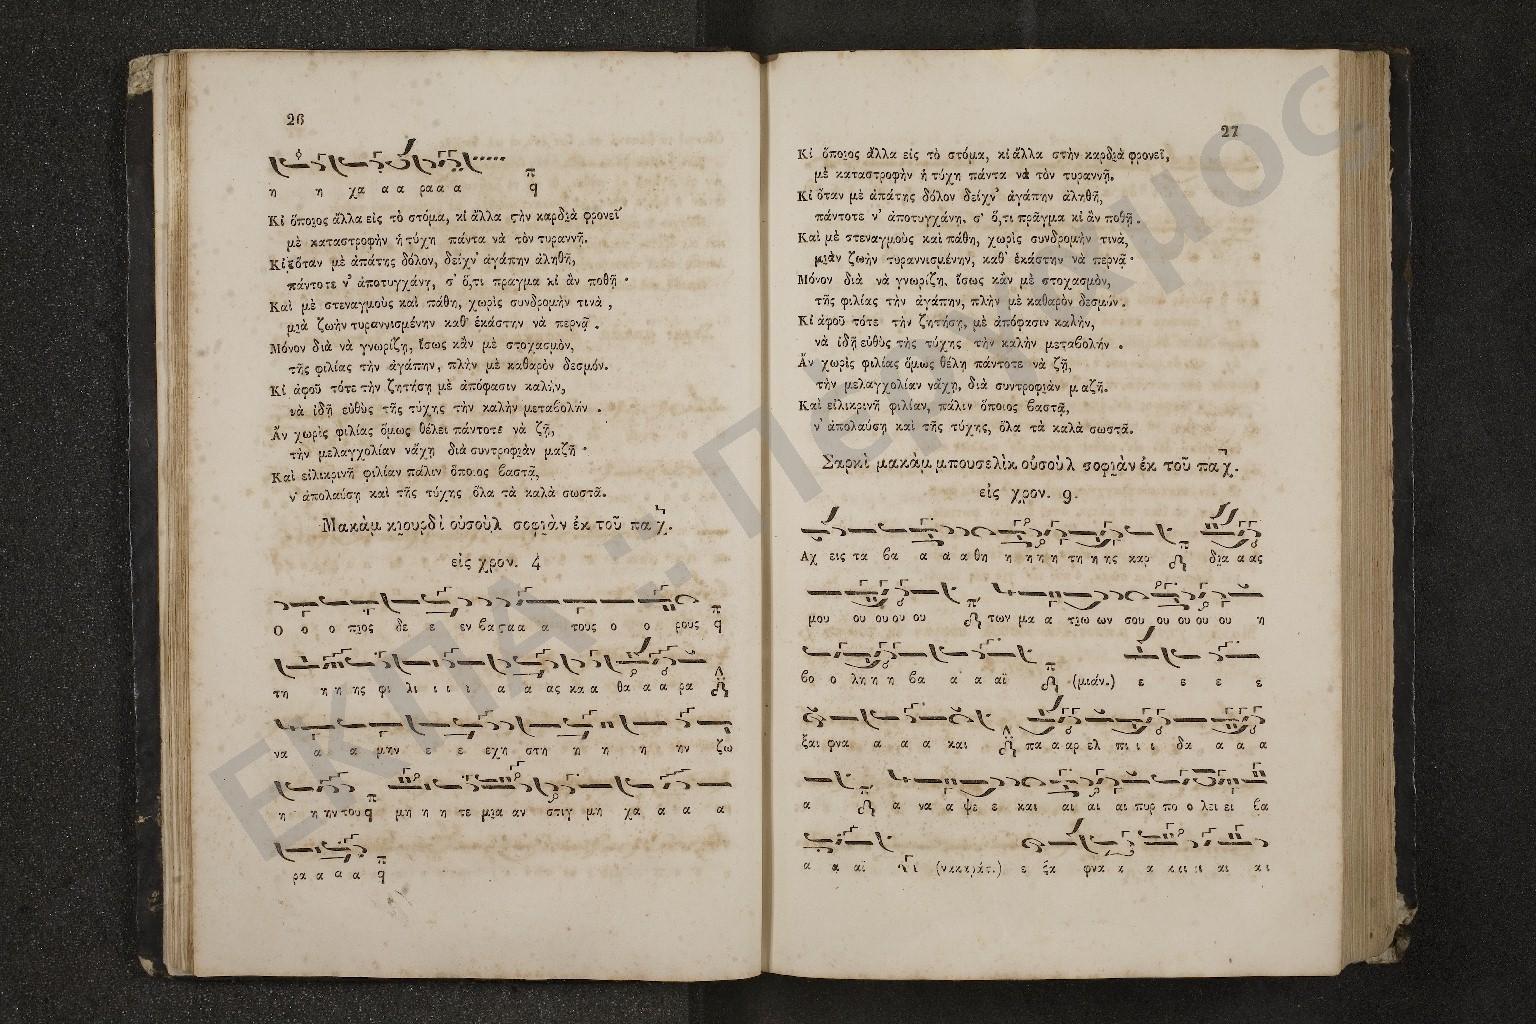 26
η η χα α α ρα α α
Κὶ ὅποιος ἄλλα εἰς τὸ στόμα, κὶ ἄλλα ςὴν καρδιὰ φρονεῖ
μὲ καταστροφὴν ἡ τύχη πάντα νὰ τὸν τυραννῇ.
Κὶ ὅταν μὲ ἀπάτης δόλον, δείχν' ἀγάπην ἀληθῆ,
πάντοτε ν' ἀποτυγχάνῃ, σ' ὅ,τι πραγμα κὶ ἂν ποθῇ ·
Καὶ μὲ στεναγμοὺς καὶ πάθη, χωρὶς συνδρομὴν τινὰ ,
μιὰ ζωὴν τυραννισμένην καθ' ἑκάστην νὰ περνᾷ .
Μόνον διὰ νὰ γνωρίζῃ, ἴσως κἂν μὲ στοχασμὸν,
τῆς φιλίας τὴν ἀγάπην, πλὴν μὲ καθαρὸν δεσμόν.
Κὶ ἀφοῦ τότε τὴν ζητήσῃ μὲ ἀπόφασιν καλὴν,
νὰ ἰδῇ εὐθὺς τῆς τύχης τὴν καλὴν μεταβολήν .
Ἂν χωρὶς φιλίας ὅμως θέλει πάντοτε νὰ ζῇ,
τὴν μελαγχολίαν νἄχῃ διὰ συντροφιὰν μαζῆ ·
Καὶ εἰλικρινῆ φιλίαν πάλιν ὅποιος βαστᾷ,
ν' ἀπολαύσῃ καὶ τῆς τύχης ὅλα τὰ καλὰ σωστᾶ.
Μακὰμ κιουρδὶ οὐσοὺλ σοφιὰν ἐκ τοῦ πα
εἰς χρον. 4
Ο ο ο πιος δε ε εν βα ςα α α τους ο ο ρους
τη η η ης φι λι ι ι ι α α ας κα α θα α α ρα
να α α μην ε ε εχη στη η η η ην ζω
η η ην του μη η η τε μια αν στιγ μη χα α α α
ρα α α α
27
Κὶ ὅποιος ἄλλα εἰς τὸ στόμα, κὶ ἄλλα στὴν καρδιὰ φρονεῖ,
μὲ καταστροφὴν ἡ τύχη πάντα νὰ τὸν τυραννῇ.
Κὶ ὅταν μὲ ἀπάτης δόλον δείχν' ἀγάπην ἀληθῆ,
πάντοτε ν' ἀποτυγχάνῃ, σ' ὅ,τι πρᾶγμα κὶ ἂν ποθῇ .
Καὶ μὲ στεναγμοὺς καὶ πάθη, χωρὶς συνδρομὴν τινὰ,
μιὰν ζωὴν τυραννισμένην, καθ' ἑκάστην νὰ περνᾷ ·
Μόνον διὰ νὰ γνωρίζῃ, ἴσως κἂν μὲ στοχασμὸν,
τῆς φιλίας τὴν ἀγάπην, πλὴν μὲ καθαρὸν δεσμόν .
Κὶ ἀφοῦ τότε τὴν ζητήσῃ, μὲ ἀπόφασιν καλὴν,
νὰ ἰδῇ εὐθὺς τῆς τύχης τὴν καλὴν μεταβολήν .
Ἂν χωρὶς φιλίας ὅμως θέλῃ πάντοτε νὰ ζῇ,
τὴν μελαγχολίαν νἄχῃ, διὰ συντροφιὰν μαζῆ.
Καὶ εἰλικρινῆ φιλίαν, πάλιν ὅποιος βαστᾷ,
ν' ἀπολαύσῃ καὶ τῆς τύχης, ὅλα τὰ καλὰ σωστᾶ.
Σαρκὶ μακὰμ μπουσελὶκ οὐσοὺλ σοφιὰν ἐκ τοῦ πα
εἰς χρον. 9.
Αχ εις τα βα α α α θη η η η η τη η ης καρ δια α ας
μου ου ου ου ου των μα α τιω ων σου ου ου ου ου η
βο ο λη η η βα α α αϊ (μιάν.) ε ε ε ε
ξαι φνα α α α και πα α αρ ελ πι ι ι δα α α α
α α να α ψε ε και αι αι αι πυρ πο ο λει ει βα
α α αϊ ε ξα φνα α
ΕΚΠΑ :: Πέργαμος